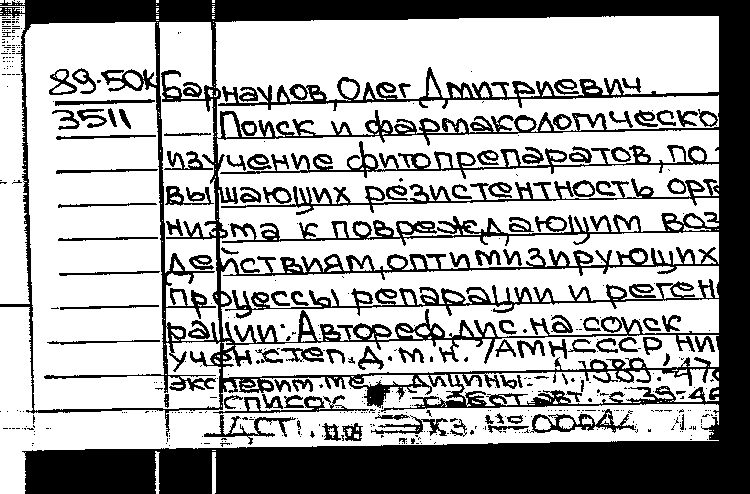 89-50к Барнаулов, Олег Дмитриевич.
3511 Поиск и фармакологическо
изучение фитопрепаратов, по
вышающих резистентность орга
низма к повреждающим воз
действиям, оптимизирующих
процессы репарации и регене
рации: Автореф. дис. на соиск.
учен. степ. д.м.н. /АМН СССР, НИИ
эксперим. медицины. - Л., 1989. - 47с
список работ авт.: с. 39-46
ДСП. Экз. № 00044.